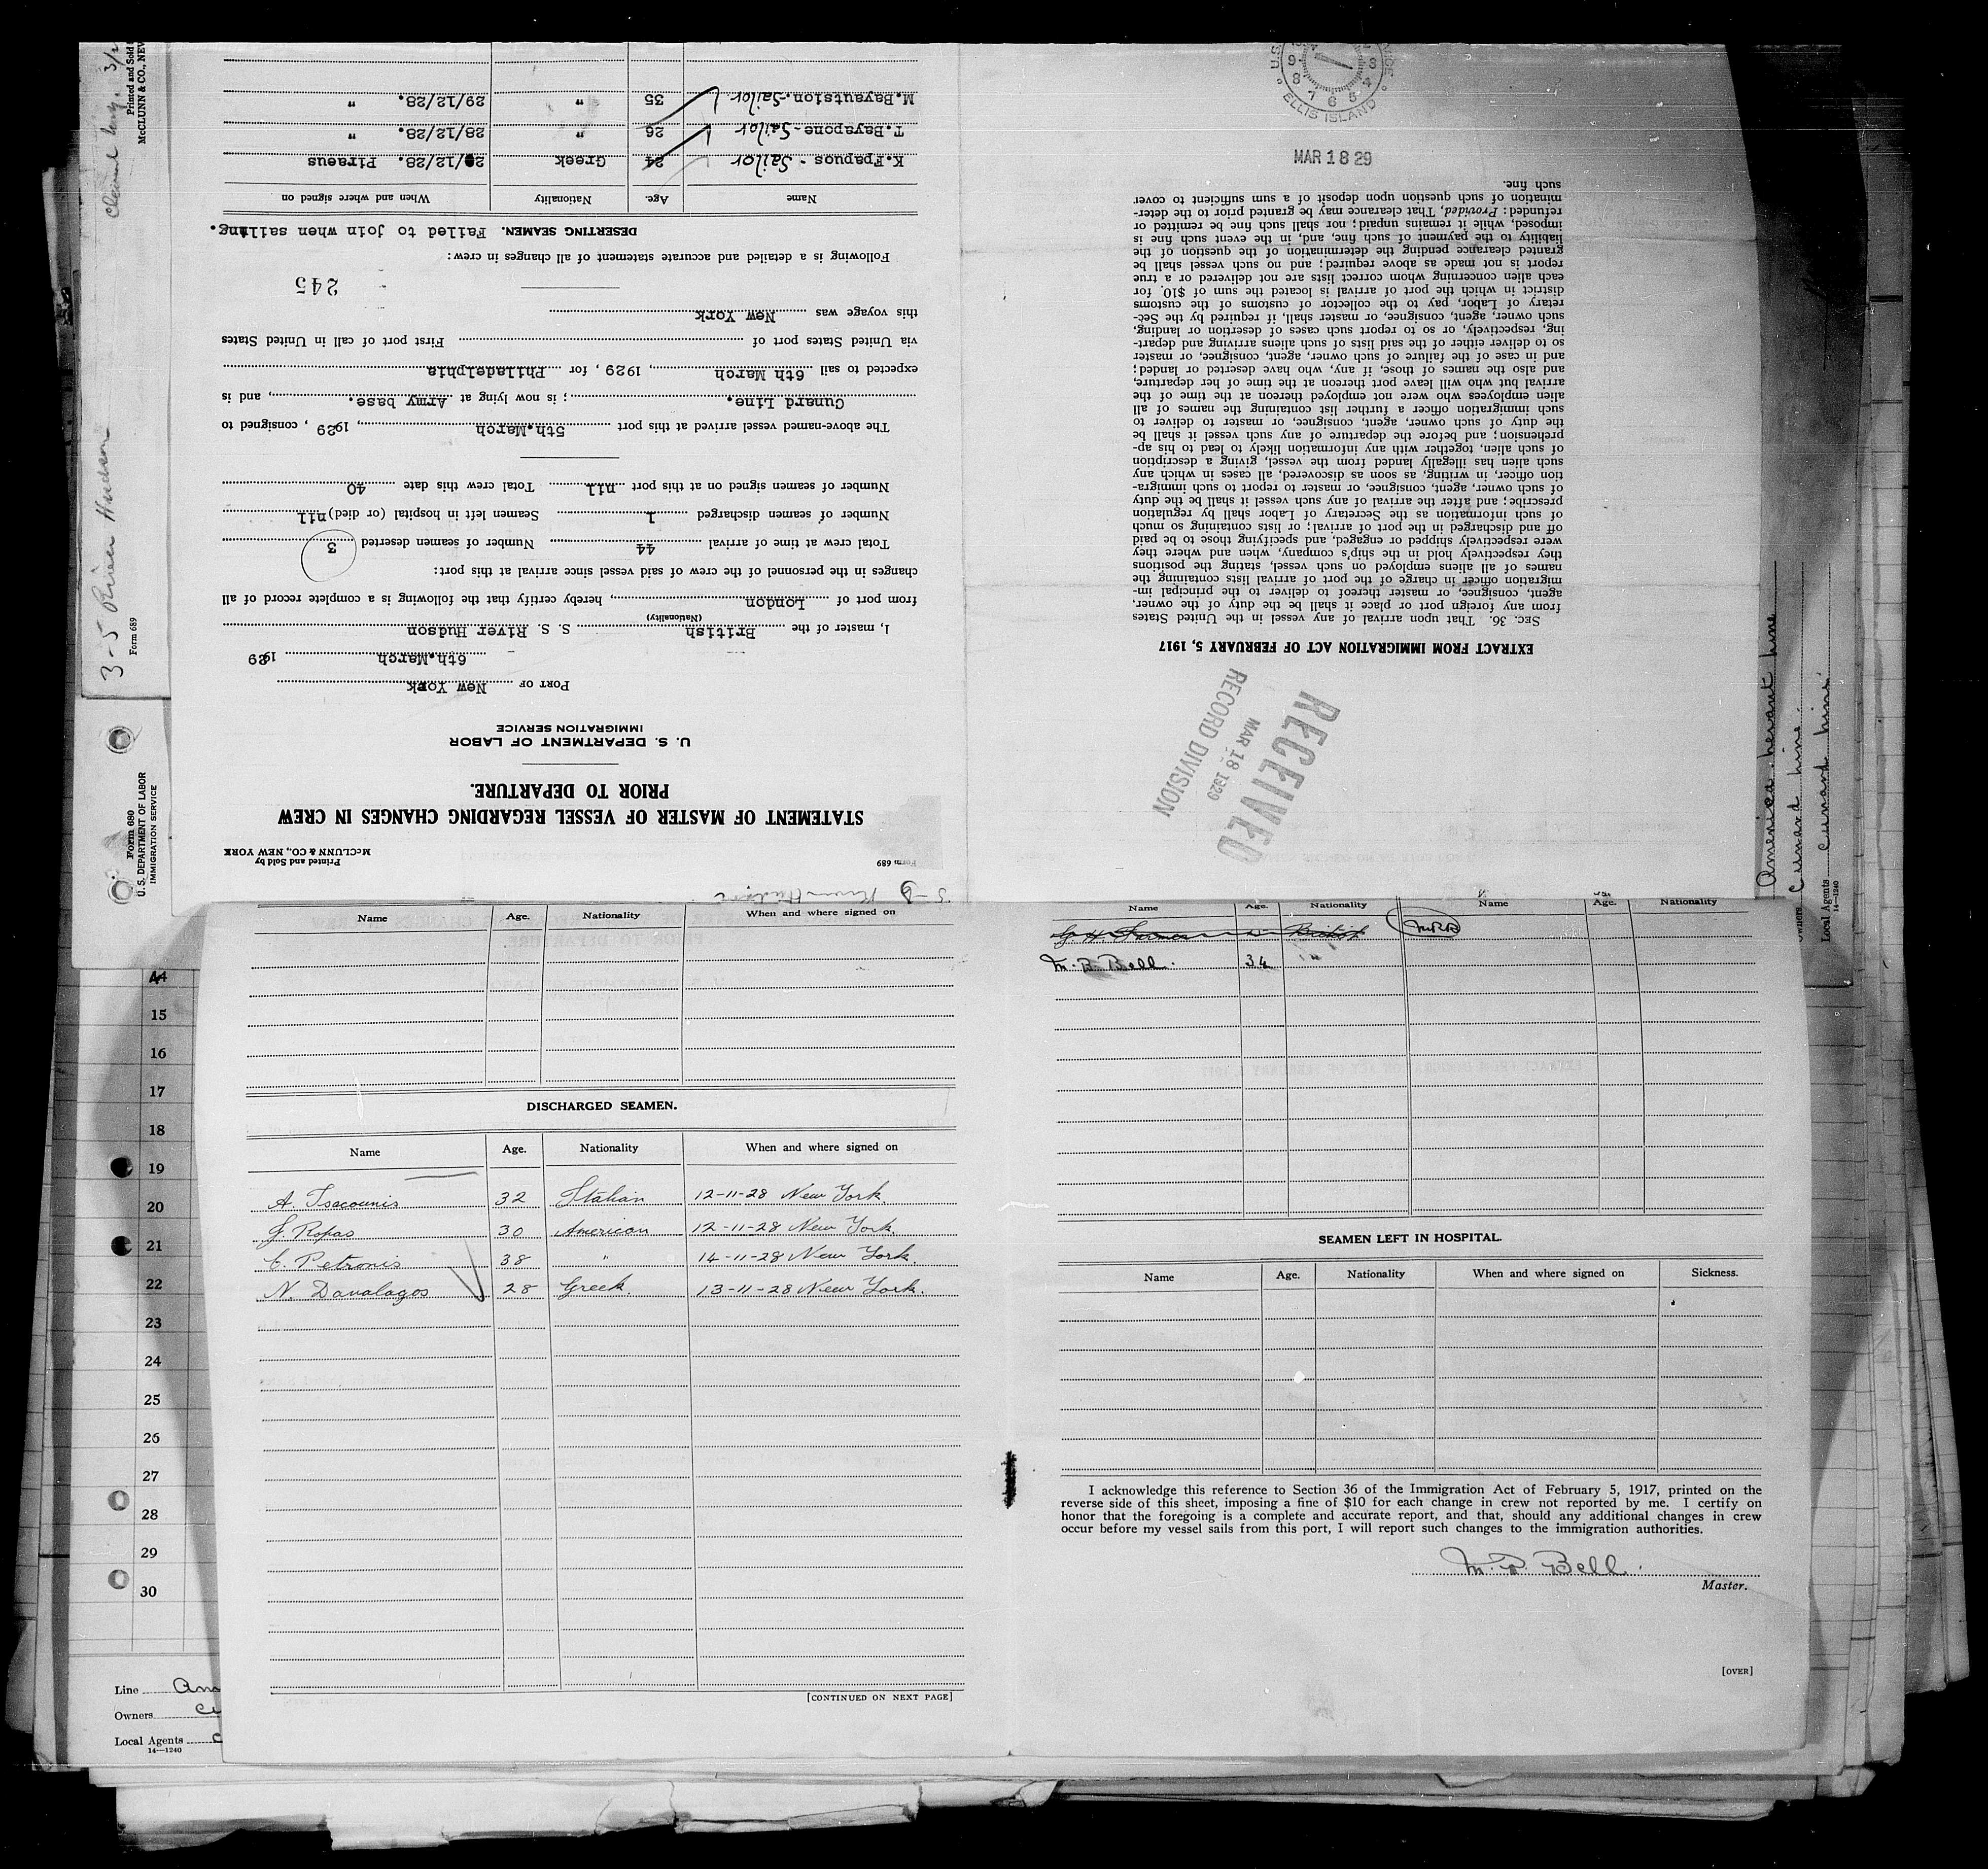 Form 689
Printed and Sold by
McCLUNN & CO., NEW YORK
STATEMENT OF MASTER OF VESSEL REGARDING CHANGES IN CREW
PRIOR TO DEPARTURE.
U. S. DEPARTMENT OF LABOR
IMMIGRATION SERVICE
PORT OF New York
6th.March 1929
I, master of the British S. S. River Hudson
(Nationality)
from port of London, hereby certify that the following is a complete record of all
changes in the personnel of the crew of said vessel since arrival at this port:
Total crew at time of arrival 44 Number of seamen deserted 3
Number of seamen discharged 1 Seamen left in hospital (or died) nil
Number of seamen signed on at this port nil Total crew this date 40
The above-named vessel arrived at this port 5th.March, 1929, consigned to
Cunard Line.; is now lying at Army base., and is
expected to sail 6th March, 1929, for Philadelphia
via United States port of First port of call in United States
this voyage was New York
245
Following is a detailed and accurate statement of all changes in crew:
DESERTING SEAMEN. Failed to join when sailing.
Name Age. Nationality When and where signed on
K.Fpapuos - Sailor 24 Greek 29/12/28. Piraeus
T.Bayapone - Sailor 26 " 28/12/28. "
M.Bayautsion.-Sailor 35 " 29/12/28. "
RECEIVED
MAR 18 1929
RECORD DIVISION
EXTRACT FROM IMMIGRATION ACT OF FEBRUARY 5, 1917
SEC. 36. That upon arrival of any vessel in the United States
from any foreign port or place it shall be the duty of the owner,
agent, consignee, or master thereof to deliver to the principal im-
migration officer in charge of the port of arrival lists containing the
names of all aliens employed on such vessel, stating the positions
they respectively hold in the ship's company, when and where they
were respectively shipped or engaged, and specifying those to be paid
off and discharged in the port of arrival; or lists containing so much
of such information as the Secretary of Labor shall by regulation
prescribe; and after the arrival of any such vessel it shall be the duty
of such owner, agent, consignee, or master to report to such immigra-
tion officer, in writing, as soon as discovered, all cases in which any
such alien has illegally landed from the vessel, giving a description
of such alien, together with any information likely to lead to his ap-
prehension; and before the departure of any such vessel it shall be
the duty of such owner, agent, consignee, or master to deliver to
such immigration officer a further list containing the names of all
alien employees who were not employed thereon at the time of the
arrival but who will leave port thereon at the time of her departure,
and also the names of those, if any, who have deserted or landed;
and in case of the failure of such owner, agent, consignee, or master
so to deliver either of the said lists of such aliens arriving and depart-
ing, respectively, or so to report such cases of desertion or landing,
such owner, agent, consignee, or master shall, if required by the Sec-
retary of Labor, pay to the collector of customs of the customs
district in which the port of arrival is located the sum of $10 for
each alien concerning whom correct lists are not delivered or a true
report is not made as above required; and no such vessel shall be
granted clearance pending the determination of the question of the
liability to the payment of such fine, and, in the event such fine is
imposed, while it remains unpaid; nor shall such fine be remitted or
refunded: Provided, That clearance may be granted prior to the deter-
mination of such question upon deposit of a sum sufficient to cover
such fine.
MAR 18 29
ELLIS ISLAND
3-5 River Hudson
Form 689
Printed and Sold
McCLUNN & CO., NEW
Form 680
U.S. DEPARTMENT OF LABOR
IMMIGRATION SERVICE
Owners Cunard Line
Local Agents Cunard Line
14—1240
Name Age. Nationality When and where signed on
DISCHARGED SEAMEN.
Name Age. Nationality When and where signed on
A. Tsacounis 32 Italian 12-11-28 New York.
G. Ropas 30 American 12-11-28 New York.
C. Petronis 38 " 14-11-28 New York.
N. Davalagos 28 Greek. 13-11-28 New York.
[CONTINUED ON NEXT PAGE]
Name Age. Nationality Name Age. Nationality
British MRB
M. B. Bell. 34 "
SEAMEN LEFT IN HOSPITAL.
Name Age. Nationality When and where signed on Sickness.
I acknowledge this reference to Section 36 of the Immigration Act of February 5, 1917, printed on the
reverse side of this sheet, imposing a fine of $10 for each change in crew not reported by me. I certify on
honor that the foregoing is a complete and accurate report, and that, should any additional changes in crew
occur before my vessel sails from this port, I will report such changes to the immigration authorities.
M. R. Bell.
Master.
[OVER]
14
15
16
17
18
19
20
21
22
23
24
25
26
27
28
29
30
Line Am
Owners Cu
Local Agents C
14—1240